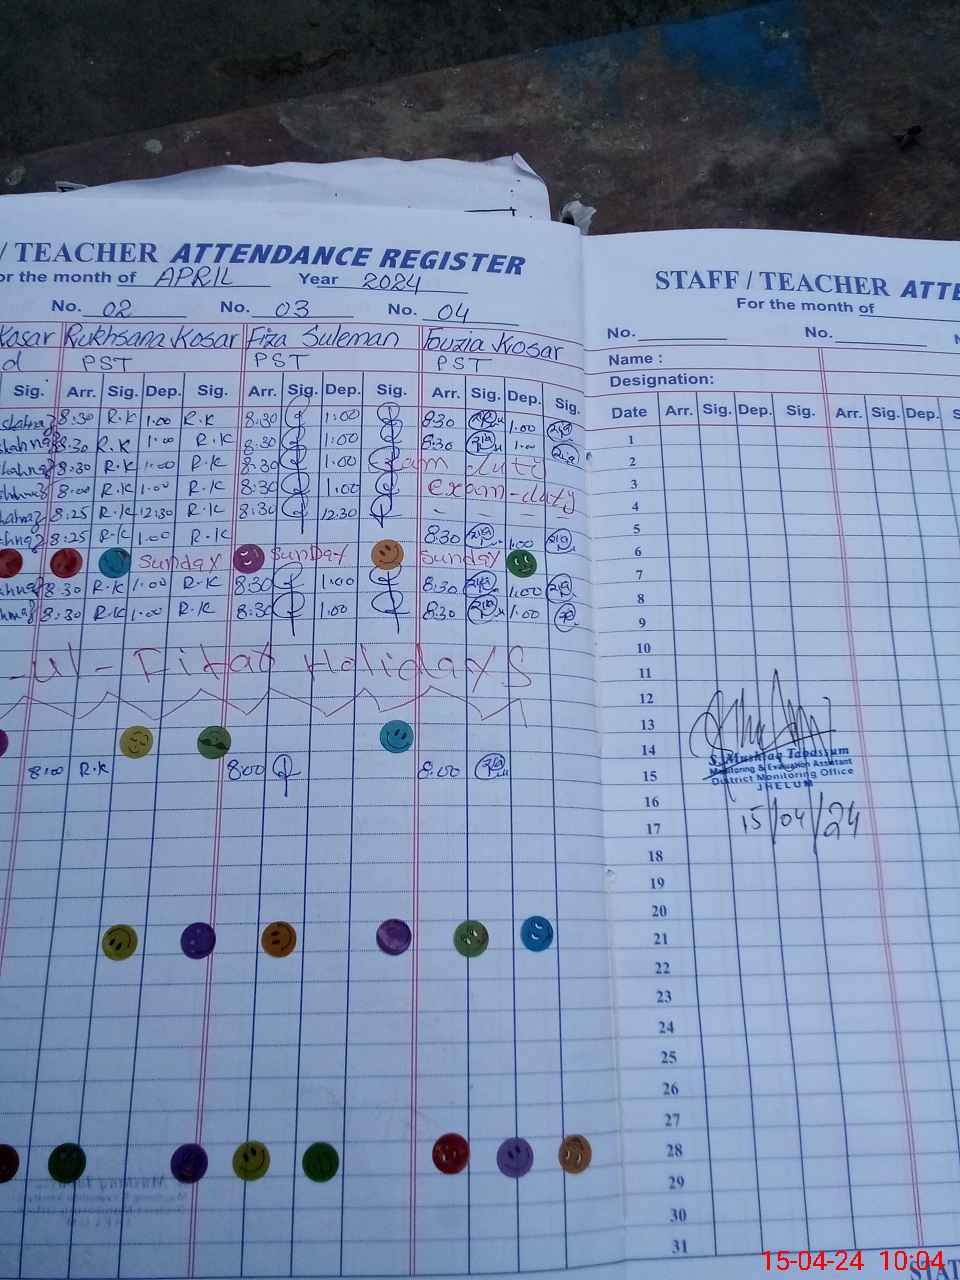 / TEACHER ATTENDANCE REGISTER
or the month of APRIL Year 2024
No. 02 No. 03 No. 04
Kosar Rukhsana Kosar Fiza Suleman Fouzia Kosar
d PST PST PST
Sig. Arr. Sig. Dep. Sig. Arr. Sig. Dep. Sig. Arr. Sig. Dep. Sig.
8:30 R.K 1:00 R.K 8:30 1:00 8:30 1:00
8:30 R.K 1:00 R.K 8:30 1:00 8:30 1:00
8:30 R.K 1:00 R.K 8:30 1:00 Exam duty
8:00 R.K 1:00 R.K 8:30 1:00 exam-duty
8:25 R.K 12:30 R.K 8:30 12:30 - - - -
8:25 R.K 1:00 R.K 8:30 1:00
Sunday SunDay Sunday
8:30 R.K 1:00 R.K 8:30 1:00 8:30 1:00
8:30 R.K 1:00 R.K 8:30 1:00 8:30 1:00
-ul-Fitar Holidays
8:00 R.K 8:00 8:00
STAFF / TEACHER ATTE
For the month of
No. No. N
Name :
Designation:
Date Arr. Sig. Dep. Sig. Arr. Sig. Dep. S
1
2
3
4
5
6
7
8
9
10
11
12
13
14
15
16
17
18
19
20
21
22
23
24
25
26
27
28
29
30
31
S. Mushtaq Tabassum
Monitoring & Evaluation Assistant
District Monitoring Office
JHELUM
15/04/24
STAT
15-04-24 10:04